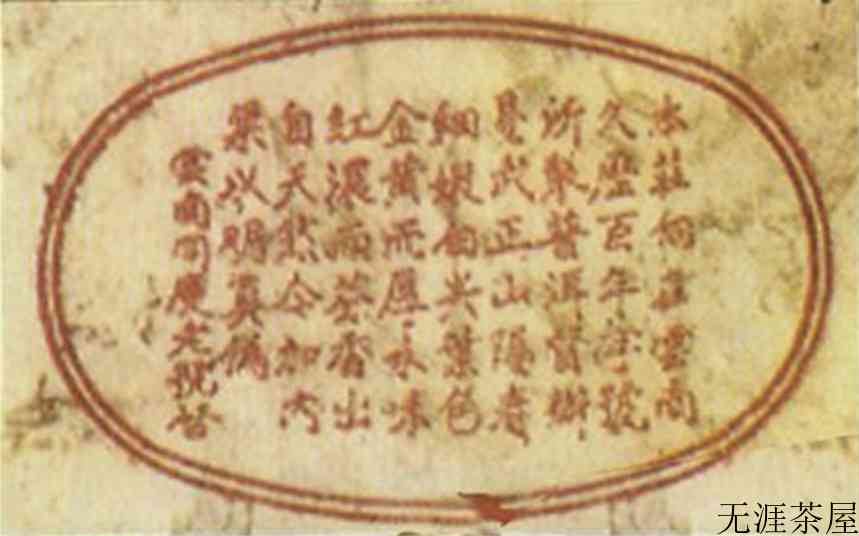 本莊向在雲南
久歷百年字號
所製普洱督辦
易武正山陽春
細嫩白尖葉色
金黃而厚水味
紅濃而芬香出
自天然今加內
票以明真偽
雲南同慶老號啓
无涯茶屋